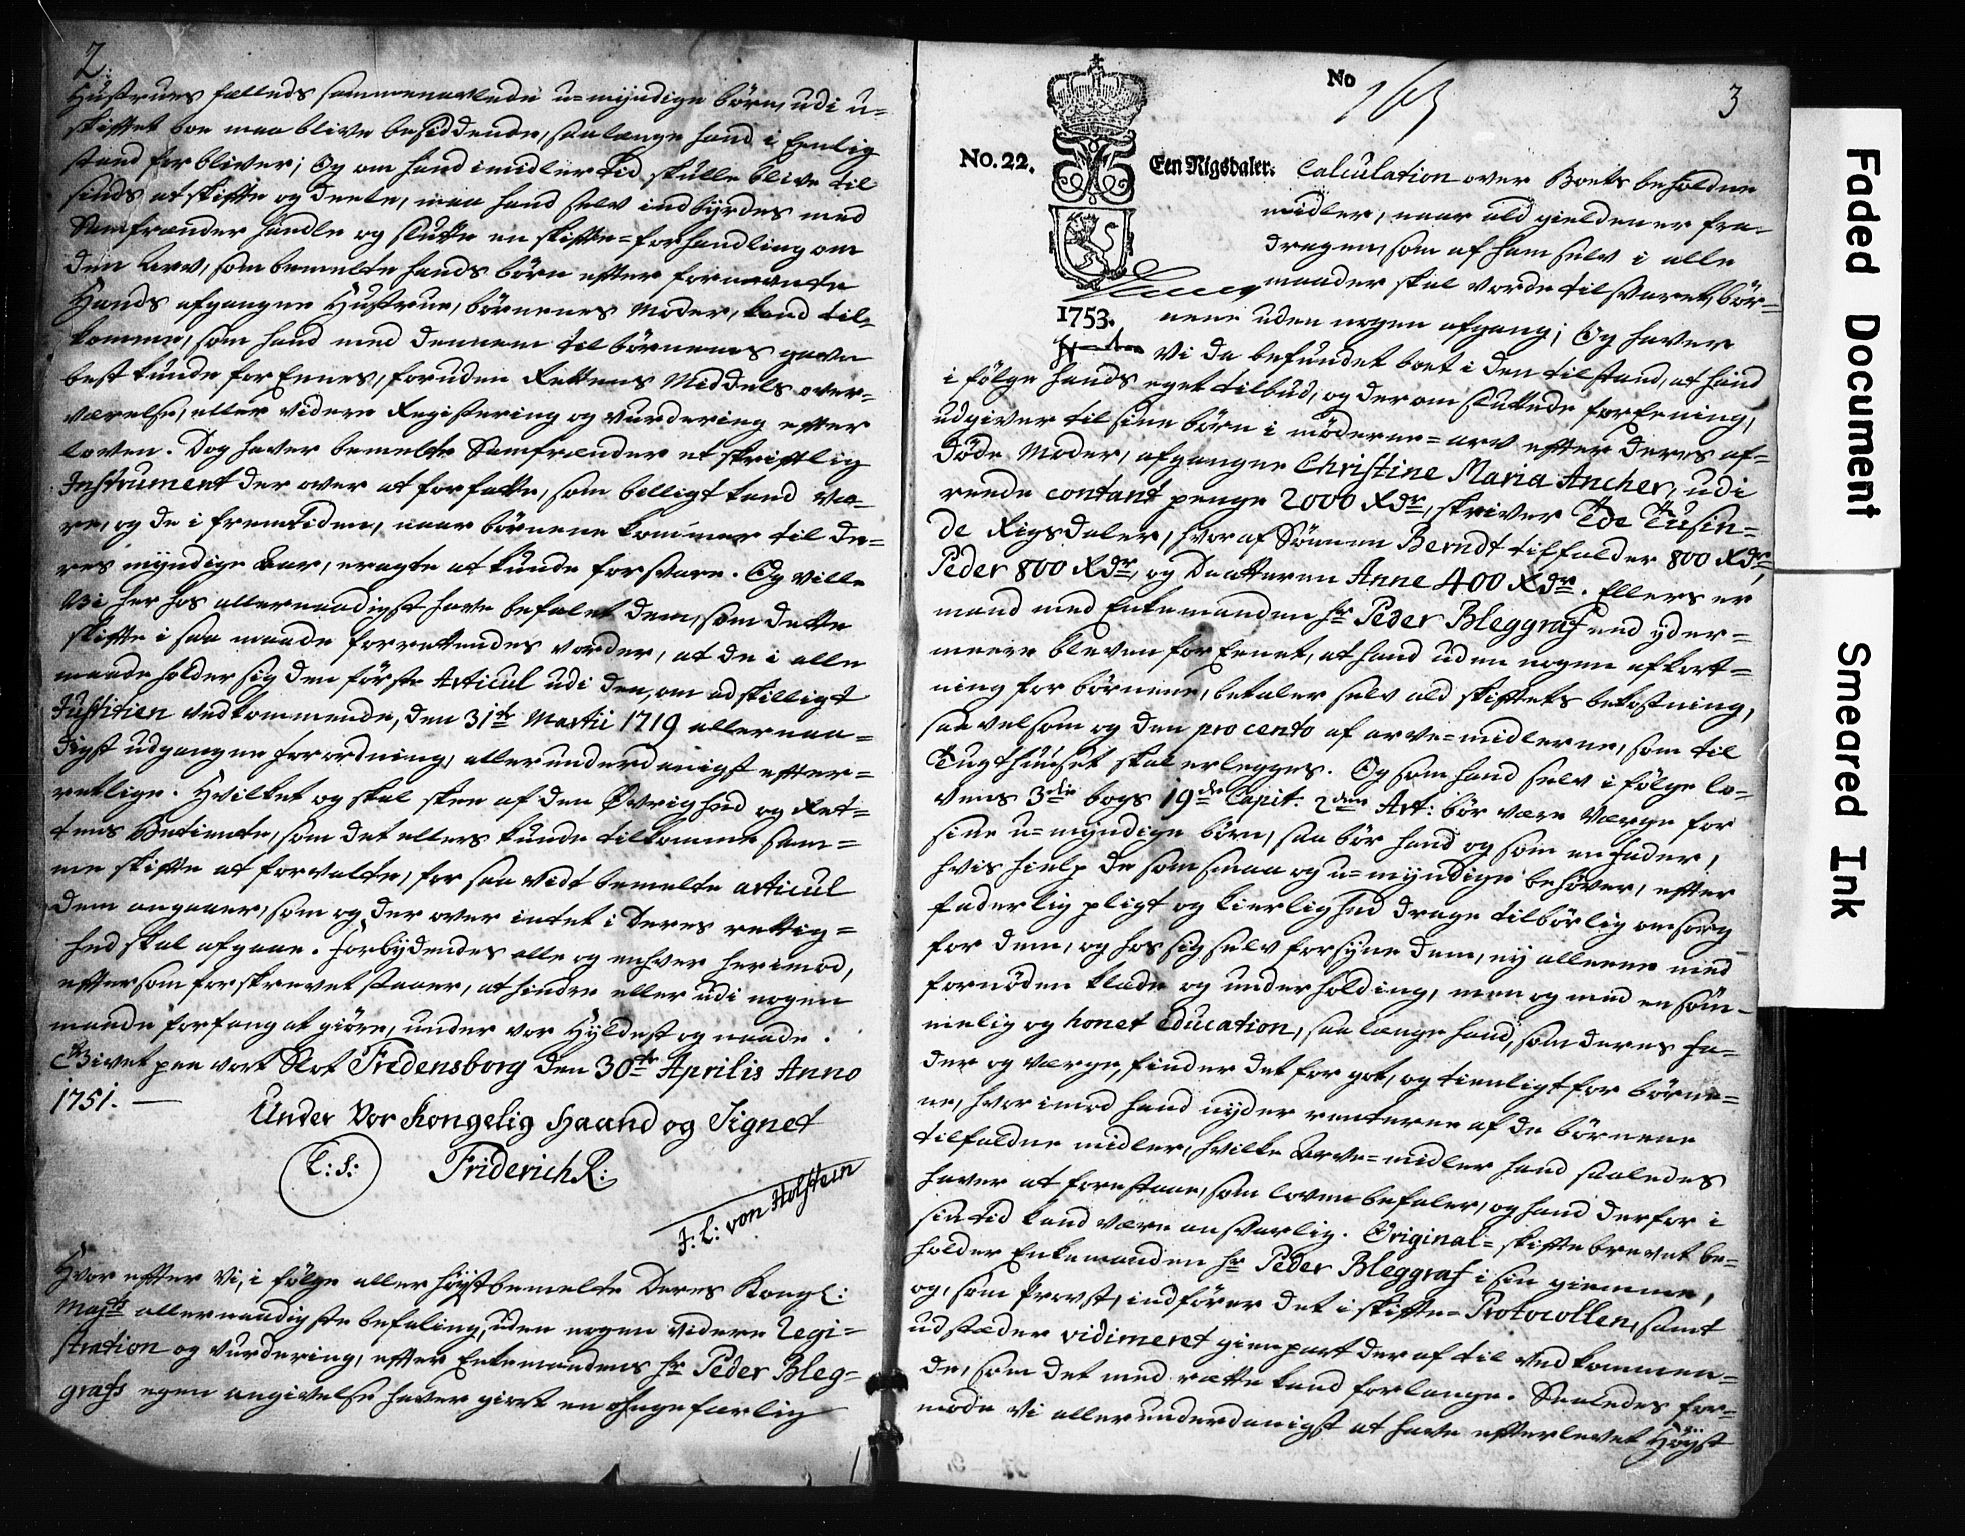 2.
Hustrues fælleds sammenavlede u=myndige børn, udi u=
skiftet boe maa blive besiddende, saalænge hand i Eenlig
stand forbliver; Og om hand imidlertid skulle blive til
sinds at skifte og deele, maa hand selv indbyrdes med
Samfrænder handle og slutte en skifte=forhandling om
den arv, som bemelte hands børn efter formeente
Hands afgangne Hustrue, børnenes Moder, kand til=
komme, som hand med dennem til børnenes gavn
best kunde foreenes, foruden Rettens Middels over=
værelse, eller videre Registering og vurdering efter
loven. Dog haver bemelte Samfrænder et skriftlig
Instrument der over at forfatte, som billigt kand væ=
re, og de i fremtiden, naar børnene kommer til de=
res myndige Aar, eragte at kunde forsvare. Og ville
Vi her hos allernaadigst have befalet dem, som dette
skifte i saa maade forrettendes vorder, at de i alle
maade holder sig den første Articul udi den, om adskilligt
Justitien vedkommende, den 31te Martii 1719 allernaa=
digst udgangne forordning, allerunderdanigst efter=
rettlige. Hvilket og skal skee af den Øvrighed og Ret=
tens Betiente, som det ellers kunde tilkomme sam=
me skifte at forvalte, for saa vidt bemelte articul
dem angaaer, som og der over intet i Deres rettig=
hed skal afgaae. Forbydendes alle og enhver herimod,
eftersom forskrevet staaer, at hindre eller udi nogen
maade forfang at giøre, under vor Hyldest og naade.
Givet paa vort Slot Fredensborg den 30te Aprilis Anno
1751.
Under Vor Kongelig Haand og Signet
L:S: Friderich R:
J: L: von Holstein
Hvor efter Vi, i følge aller høystbemelte Deres Kongl:
Majts allernaadigste befaling, uden nogen videre Regi=
stration og vurdering, efter Enkemandens Hr Peder Bleg=
grafs egen angivelse haver giort en ohngefærlig
No 163
3
No. 22. Een Rigsdaler.
1753.
Calculation over Boets beholdne
midler, naar ald gielden er fra=
dragen, som af ham selv i alle
maader skal vorde tilsvaret, bør=
nene uden nogen afgang; Og haver
Vi da befundet boet i den tilstand, at hand
i følge hands eget tilbud, og derom sluttede foreening,
udgiver til sine børn i møderne=arv efter deres af=
døde Moder, afgangne Christine Maria Ancher, udi
reede contant penge 2000 Rdr, skriver Toe Tusin=
de Rigsdaler, hvoraf Sønnen Berndt tilfalder 800 Rdr,
Peder 800 Rdr, og Daatteren Anne 400 Rdr. Ellers er
mand med Enkemanden Hr Peder Bleggraf end yder=
meere bleven foreenet, at hand uden nogen afkort=
ning for børnene, betaler selv ald skiftets bekostning,
saavelsom og den pro cento af arve=midlerne, som til
Tugthuuset skal erlegges. Og som hand selv i følge lo=
vens 3die bogs 19de Capit: 2den Art: bør være Værge for
sine u=myndige børn, saa bør hand og som en fader,
hvis hielp de som smaa og u=myndige behøver, efter
faderlig pligt og kierlighed drage tilbørlig omsorg
for dem, og hos sig selv forsyne dem, ey alleene med
fornøden klæde og underholding, men og med en søm=
melig og honet education, saa længe hand, som deres fa=
der og værge, finder det for got, og tienligt for børne=
ne, hvorimod hand nyder renterne af de børnene
tilfaldne midler, hvilke Arve=midler hand saaledes
haver at forestaae, som loven befaler, og hand derfor i
sin tid kand være ansvarlig. Original=skiftebrevet be=
holder Enkemanden Hr Peder Bleggraf i sin giemme,
og, som Provst, indfører det i skifte=Protocollen, samt
udstæder vidimeret gienpart der af til vedkommen=
de, som det med rætte kand forlange. Saaledes for=
mode Vi allerunderdanigst at have efterlevet Høyst
Faded Document
Smeared Ink